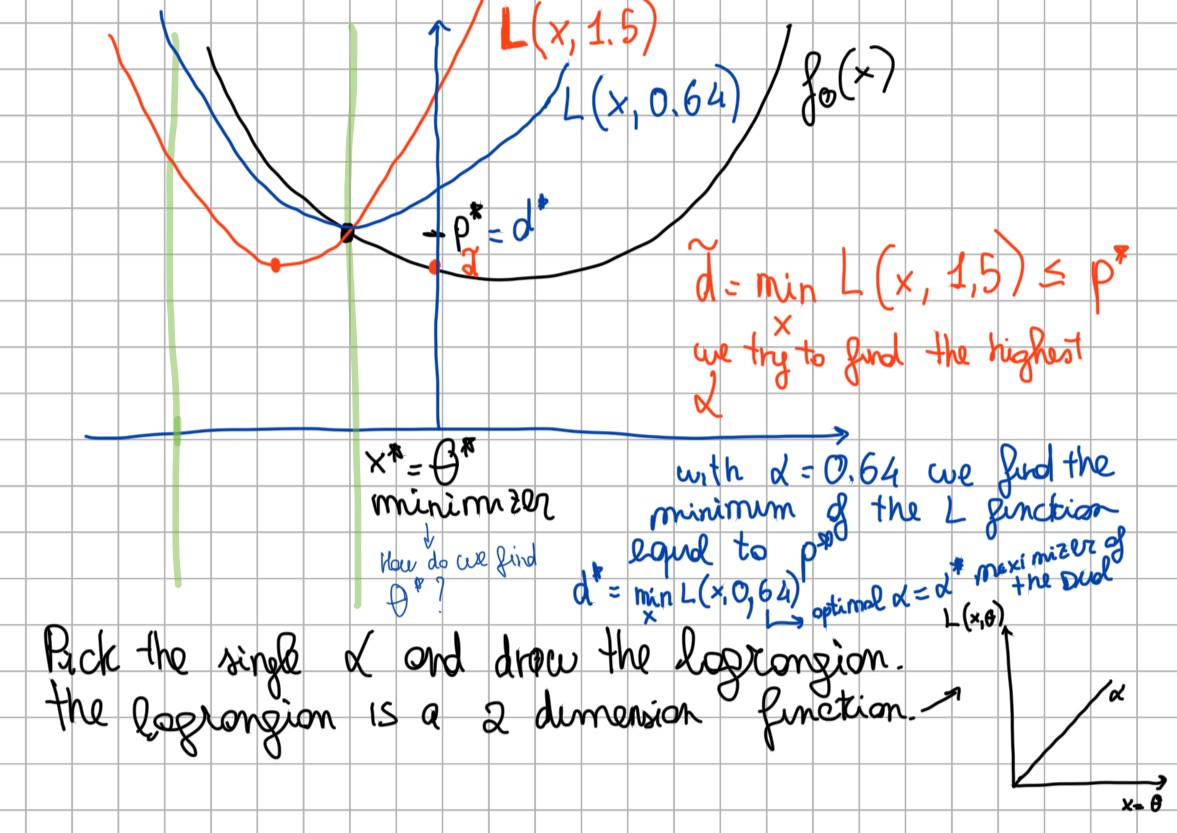 L(x, 1.5)
L(x, 0.64)
f₀(x)
p* = d*
d̃
d̃ = min L(x, 1,5) ≤ p*
x
we try to find the highest
α
x* = θ*
minimizer
↓
How do we find
θ* ?
with α = 0.64 we find the
minimum of the L function
equal to p*
d* = min L(x, 0,64)
x
↳ optimal α = α* maximizer of
the Dual
Pick the single α and draw the lagrangian.
the lagrangian is a 2 dimension function. →
L(x,θ)
α
x = θ